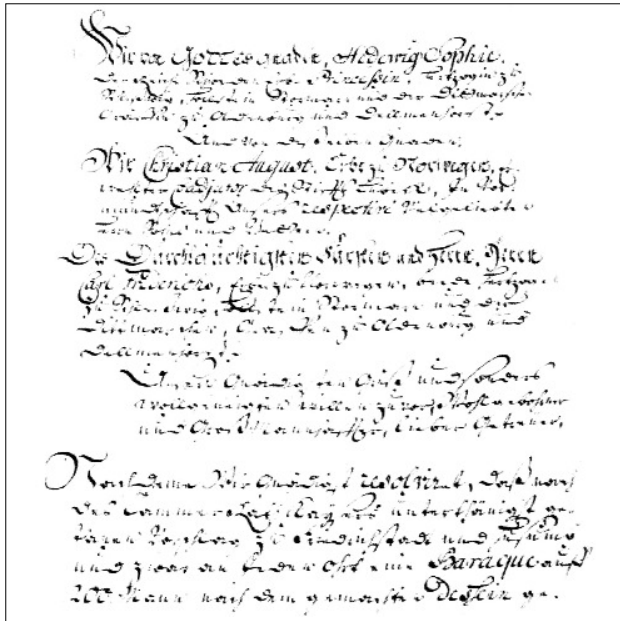 Wir von GOTTES Gnaden, Hedewig Sophie,
der Reiche Schweden Erb- Princessin, Hertzogin zu
Schleßwig, Hollstein Stormarn und der Dittmarschen
Gräffin zu Oldenburg und Dellmenhorst.
Und von desselben Gnaden,
Wir Christian August, Erbe zu Norwegen,
Coadjutor des Stiffts Lübeck, In Vor
mundschafft Unsers respective Vielgeliebten
Herrn Sohns und Vettern,
Des Durchläuchtigsten Fürsten und Herrn, Herrn
Carl Friderichs, Erben zu Norwegen, Hertzogen
zu Schleßwig, Hollstein Stormarn und der
Dittmarschen, Graffen zu Oldenburg und
Dellmenhorst.
Unsern Gnädigsten Gruß und sonders
wollgeneigten Willen zuvor, Wohlgebohrner
und Lieber Getreuer,
Nachdeme Wir Gnädigst resolviret, daß nach
des Cammer unterthänigst ge
Vorschlag zu Friedrichstadt und Husumb
und zwar an jeden Ohrt eine Baraque auff
200 Mann nach dem gemachten Dessein ge-